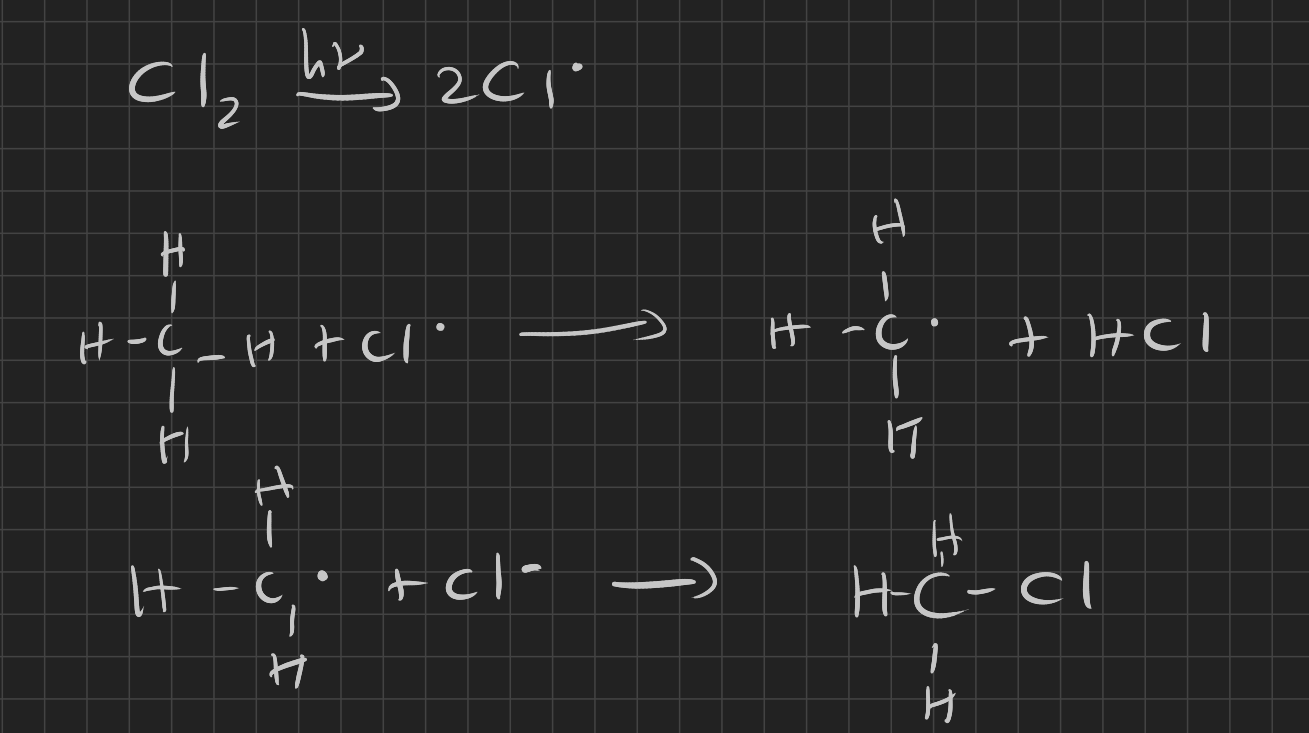 Cl₂ hν → 2Cl•
H H
H-C-H + Cl• → H-C• + HCl
H H
H H
H-C• + Cl• → H-C-Cl
H H